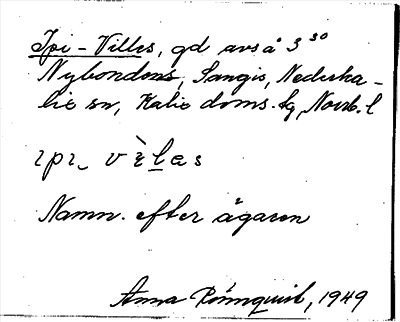 Ipi-Villes, gd avså 3³⁰
Nybondens, Sangis, Nederka-
lix sn, Kalix doms. fg, Norrb. l
ıpı_ v è l æ s
Namn. efter ägaren
Anna Rönnquist, 1949